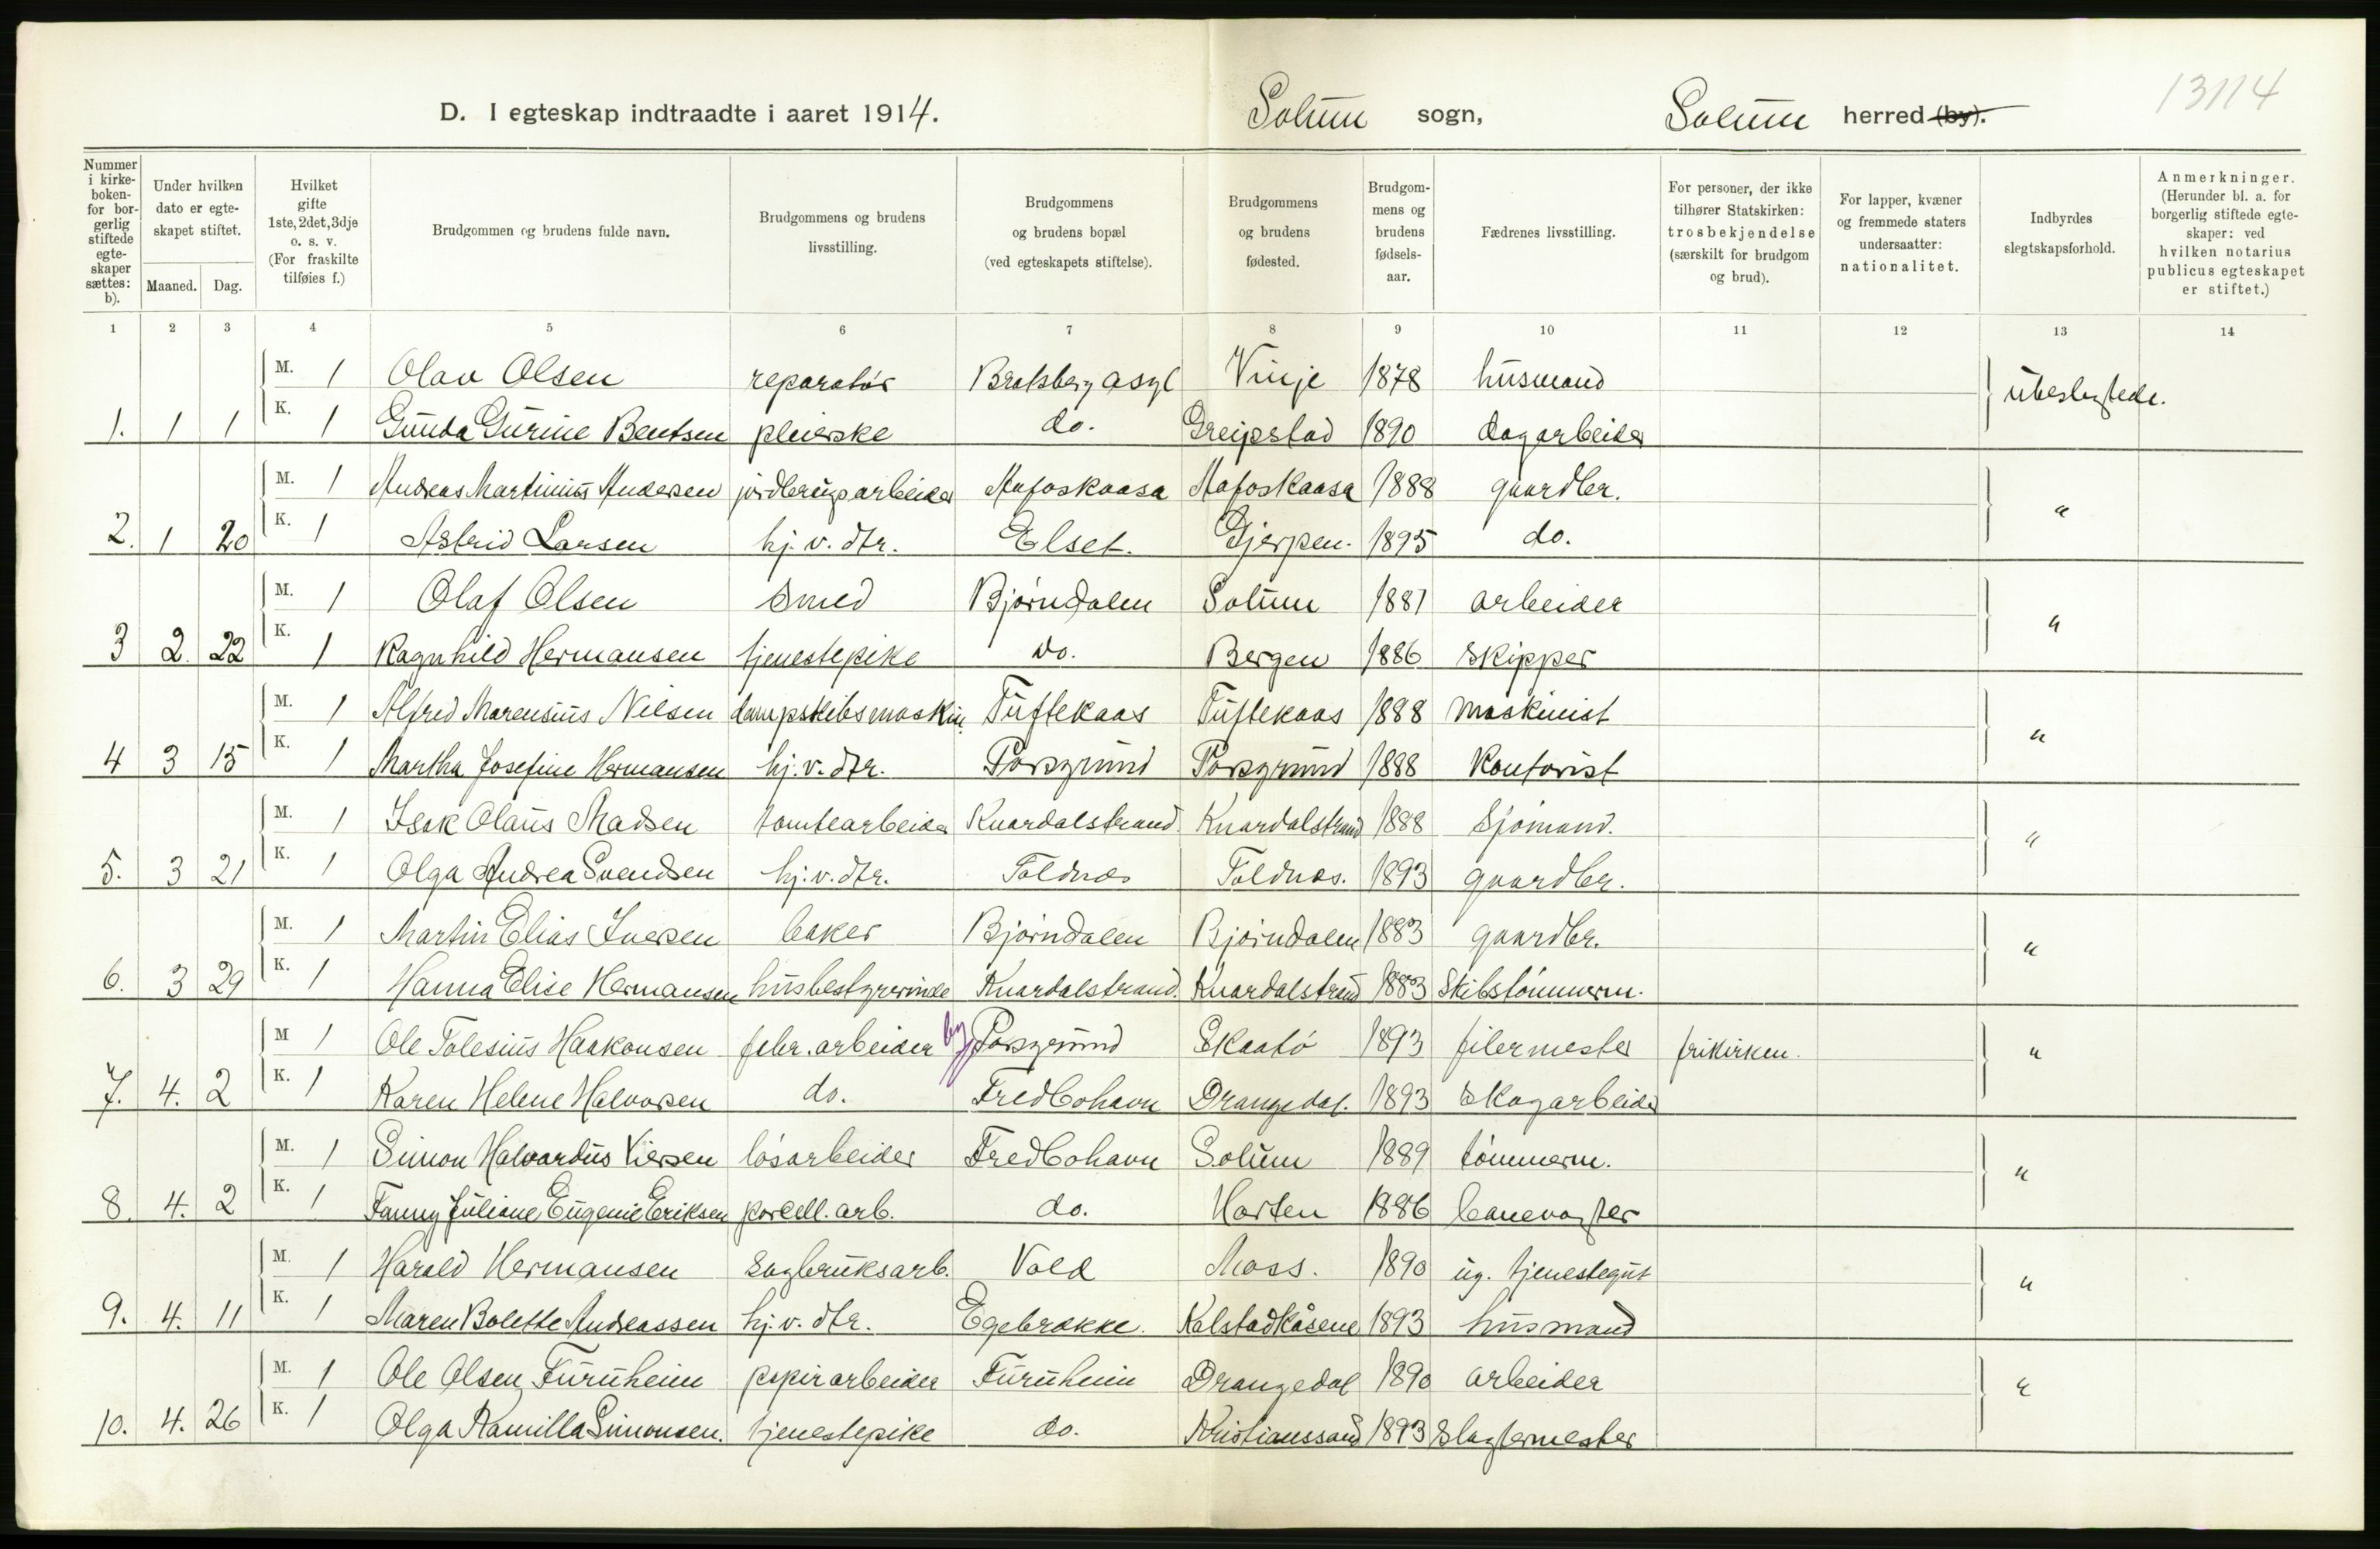 13114
D. I egteskap indtraadte i aaret 1914. Solum sogn, Solum herred (by).
Nummer i kirke-boken- for bor-gerlig stiftede egte-skaper sættes: b).
Under hvilken dato er egte-skapet stiftet.
Maaned. Dag.
Hvilket gifte 1ste, 2det, 3dje o. s. v. (For fraskilte tilføies f.)
Brudgommen og brudens fulde navn.
Brudgommens og brudens livsstilling.
Brudgommens og brudens bopæl (ved egteskapets stiftelse).
Brudgommens og brudens fødested.
Brudgom-mens og brudens fødsels-aar.
Fædrenes livsstilling.
For personer, der ikke tilhører Statskirken: trosbekjendelse (særskilt for brudgom og brud).
For lapper, kvæner og fremmede staters undersaatter: nationalitet.
Indbyrdes slegtskapsforhold.
Anmerkninger. (Herunder bl. a. for borgerlig stiftede egte-skaper: ved hvilken notarius publicus egteskapet er stiftet.)
1 2 3 4 5 6 7 8 9 10 11 12 13 14
M. 1 Olav Olsen reparatør Bratsberg asyl Vinje 1878 husmand ubeslegtede.
1. 1 1 K. 1 Gunda Gurine Bentsen pleierske do. Greipstad 1890 dagarbeider
M. 1 Andreas Martinius Andersen jordbrugsarbeider Aafoskaasa Aafoskaasa 1888 gaardbr. "
2. 1 20 K. 1 Astrid Larsen hj. v. dtr. Elset. Gjerpen. 1895 do.
M. 1 Olaf Olsen smed Bjørndalen Solum 1881 arbeider "
3 2. 22 K. 1 Ragnhild Hermansen tjenestepike do. Bergen 1886 skipper
M. 1 Alfred Marensius Nilsen dampskibsmaskin. Tuftekaas Tuftekaas 1888 maskinist "
4 3 15 K. 1 Martha Josefine Hermansen hj. v. dtr. Porsgrund Porsgrund 1888 kontorist
M. 1 Isak Olaus Madsen tomtearbeider Knardalstrand Knardalstrand 1888 sjømand. "
5. 3 21 K. 1 Olga Andrea Svendsen hj. v. dtr. Toldnæs Toldnæs. 1893 gaardbr.
M. 1 Martin Elias Iversen baker Bjørndalen Bjørndalen 1883 gaardbr. "
6. 3 29 K. 1 Hanna Elise Hermansen husbestyrerinde Knardalstrand. Knardalstrand 1883 skibstømmerm.
M 1 Ole Tolesius Haakonsen fabr. arbeider by Porsgrund Skaatø 1893 filermester frikirken. "
7. 4. 2 K. 1 Karen Helene Halvorsen do. Fredbohavn Drangedal. 1893 skogarbeider
M. 1 Simon Halvardus Viersen løsarbeider Fredbohavn Solum 1889 tømmerm. "
8. 4. 2 K. 1 Fanny Juliane Eugenie Eriksen porcell. arb. do. Horten 1886 banevogter
M. 1 Harald Hermansen sagbruksarb. Vold Moss. 1890 ug. tjenestegut "
9. 4. 11 K. 1 Maren Bolette Andreassen hj. v. dtr. Egebrække. Kolstadkåsene 1893 husmand
M. 1 Ole Olsen Furuheim papirarbeider Furuheim Drangedal 1890 arbeider "
10. 4. 26 K. 1 Olga Kamilla Simonsen. tjenestepike do. Kristianssand 1893 slagtermester